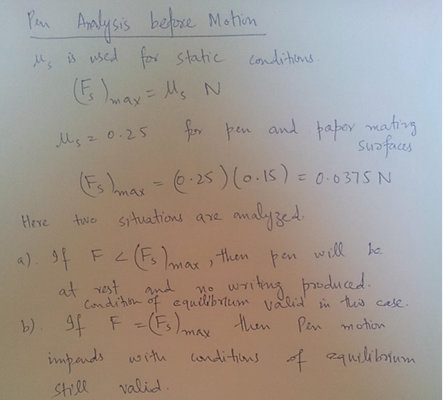 Pen Analysis before Motion
μs is used for static conditions.
(Fs)max = μs N
μs = 0.25 for pen and paper mating
surfaces
(Fs)max = (0.25)(0.15) = 0.0375 N
Here two situations are analyzed.
a). If F < (Fs)max, then pen will be
at rest and no writing produced.
condition of equilibrium valid in this case.
b). If F = (Fs)max then Pen motion
impends with conditions of equilibrium
still valid.